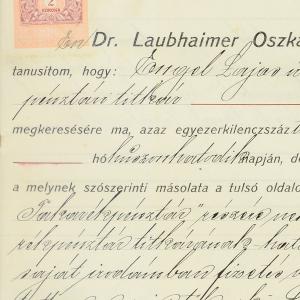 2
Én Dr. Laubhaimer Oszká
tanusitom, hogy: Engel Lajos
pénztári titkár
megkeresésére ma, azaz egyezerkilenczszáz
hó huszonhatodik napján, d
a melynek szószerinti másolata a tulsó oldalo
Takarékpénztár" részvé
rékpénztár titkárának
saját irodámban fizetés